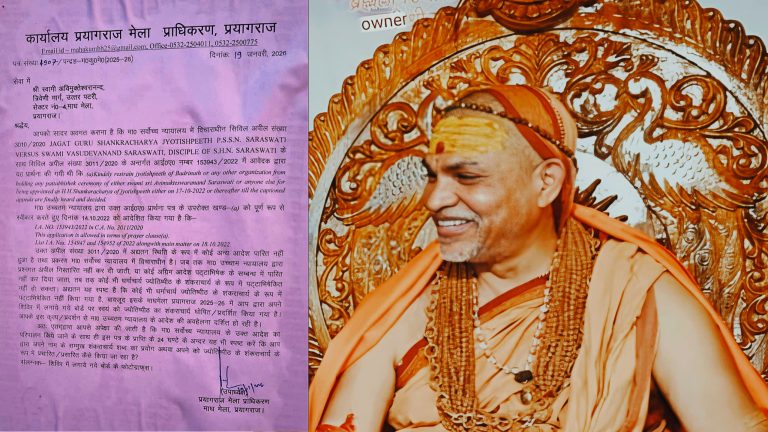 कार्यालय प्रयागराज मेला प्राधिकरण, प्रयागराज
Email id – mahakumbh25@gmail.com, Office-0532-2504011, 0532-2500775
पत्र संख्या /पन्द्रह-मा0मे0(2025-26) दिनांक: 19 जनवरी, 2026
सेवा में
श्री स्वामी अविमुक्तेश्वरानन्द,
त्रिवेणी मार्ग, उत्तर पटरी,
सेक्टर नं0-4, माघ मेला,
प्रयागराज।
श्रद्धेय,
आपको सादर अवगत कराना है कि मा0 सर्वोच्च न्यायालय में विचाराधीन सिविल अपील संख्या
3010/2020 JAGAT GURU SHANKRACHARYA JYOTISHPEETH P.S.S.N. SARASWATI
VERSUS SWAMI VASUDEVANAND SARASWATI, DISCIPLE OF S.H.N. SARASWATI के
साथ सिविल अपील संख्या 3011/2020 के अन्तर्गत आई0ए0 नम्बर 153943/2022 में आवेदक द्वारा
यह प्रार्थना की गयी थी कि (a)Kindly restrain jyotishpeeth of Badrinath or any other organization from
holding any pattabhishek ceremony of either swami sri Avimukteswaranand Saraswati or anyone else for
being appointed as H.H Shankracharya of jyotishpeeth either on 17-10-2022 or thereafter till the captioned
appeals are finally heard and decided.
मा0 उच्चतम न्यायालय द्वारा उक्त आई0ए0 प्रार्थना पत्र के उपरोक्त खण्ड-(a) को पूर्ण रूप से
स्वीकार करते हुए दिनांक 14.10.2022 को आदेशित किया गया है कि–
I.A. NO. 153943/2022 in C.A. No. 3011/2020
This application is allowed in terms of prayer clause(a).
List I.A. No. 154947 and 154952 of 2022 alongwith main matter on 18.10.2022.
उक्त अपील संख्या 3011/2020 में अद्यतन स्थिति के रूप में कोई अन्य आदेश पारित नहीं
हुआ है तथा प्रकरण मा0 सर्वोच्च न्यायालय में विचाराधीन है। जब तक मा0 उच्चतम न्यायालय द्वारा
प्रश्नगत अपील निस्तारित नहीं कर दी जाती, या कोई अग्रिम आदेश पट्टाभिषेक के सम्बन्ध में पारित
नहीं कर दिया जाता, तब तक कोई भी धर्माचार्य ज्योतिष्पीठ के शंकराचार्य के रूप में पट्टाभिषेकित
नहीं हो सकता। अद्यतन यह स्पष्ट है कि कोई भी धर्माचार्य ज्योतिष्पीठ के शंकराचार्य के रूप में
पट्टाभिषेकित नहीं किया गया है, बावजूद इसके माघमेला प्रयागराज 2025-26 में आप द्वारा अपने
शिविर में लगाये गये बोर्ड पर स्वयं को ज्योतिष्पीठ का शंकराचार्य घोषित/प्रदर्शित किया गया है।
आपके इस कृत्य/प्रदर्शन से मा0 उच्चतम न्यायालय के आदेश की अवहेलना दर्शित हो रही है।
अतः एतद्द्वारा आपसे अपेक्षा की जाती है कि मा0 सर्वोच्च न्यायालय के उक्त आदेश का
परिपालन किये जाने के साथ ही इस पत्र के प्राप्ति के 24 घण्टे के अन्दर यह भी स्पष्ट करें कि आप
द्वारा अपने नाम के सम्मुख शंकराचार्य शब्द का प्रयोग अथवा अपने को ज्योतिष्पीठ के शंकराचार्य के
रूप में प्रचारित/प्रसारित कैसे किया जा रहा है?
संलग्नक– शिविर में लगाये गये बोर्ड के फोटोग्राफ्स।
प्रयागराज मेला प्राधिकरण
माघ मेला, प्रयागराज।
owner